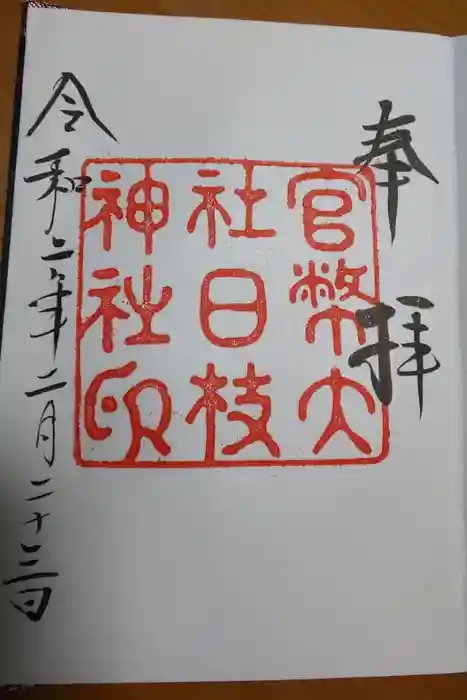 奉拝
官幣大
社日枝
神社印
令和二年二月二十三日